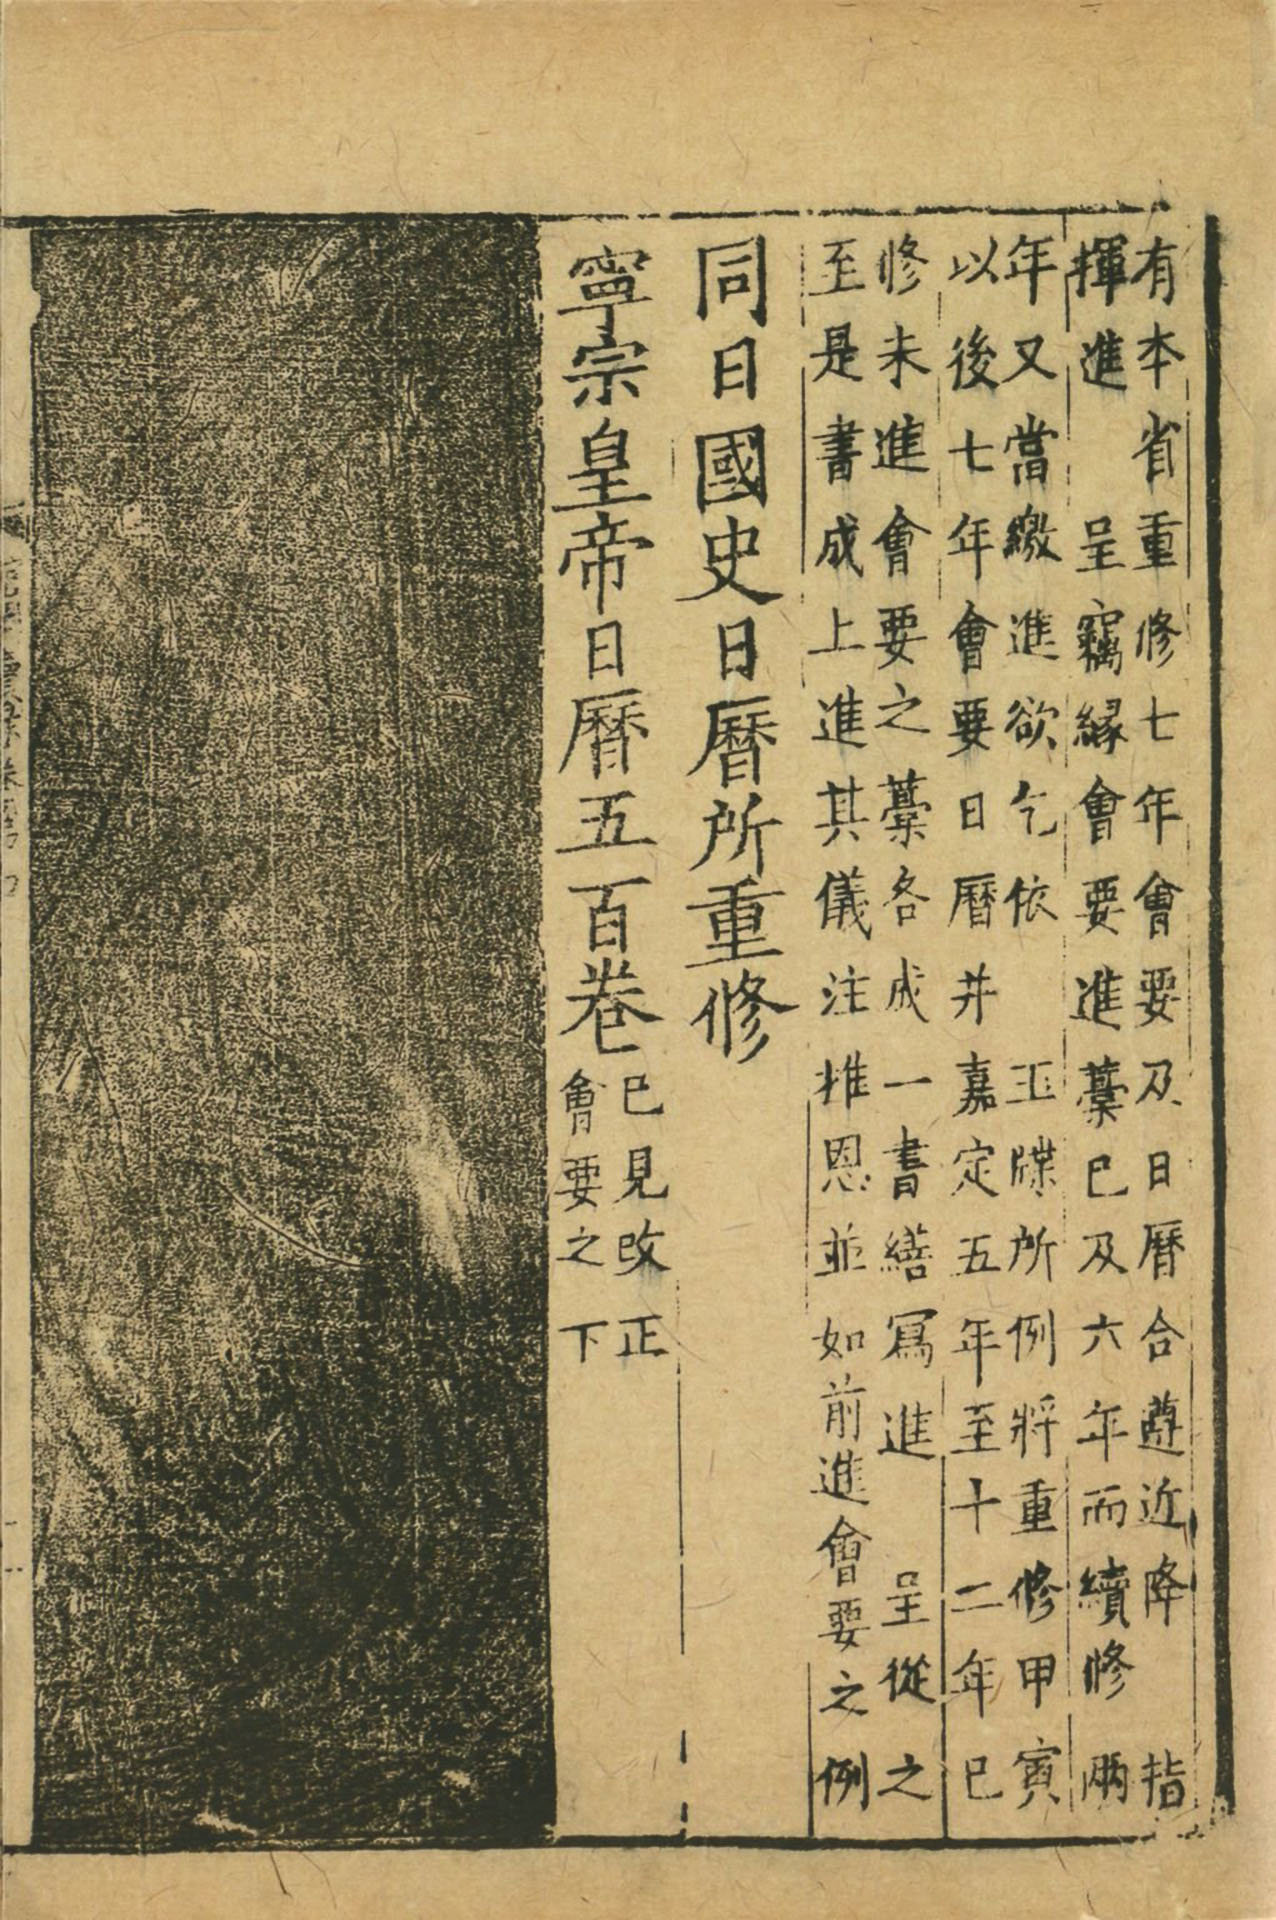 有本省重修七年會要及日曆合遵近降　指
揮進　呈竊縁會要進藁已及六年而續修兩
年又當繳進欲乞依　玉牒所例將重修甲寅
以後七年會要日曆并嘉定五年至十二年已
修未進會要之藁各成一書繕寫進　呈從之
至是書成上進其儀注推恩並如前進會要之例
同日國史日曆所重修
寧宗皇帝日曆五百卷
已見改正
會要之下